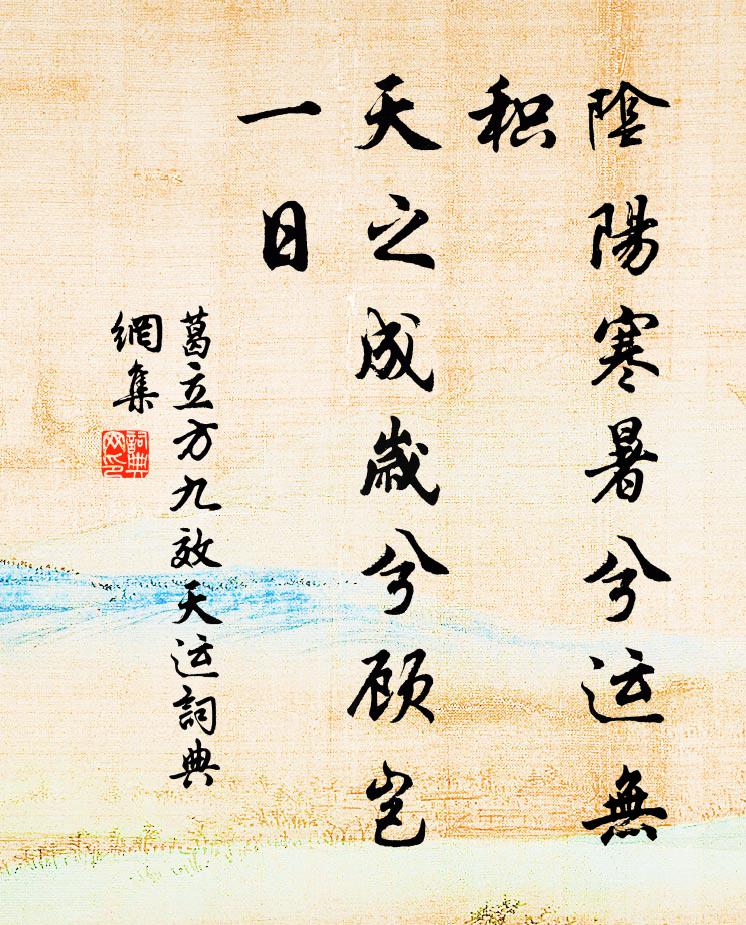 陰陽寒暑兮运無
积
天之成歲兮顾岂
一日
葛立方九效天运詞典
網集
詞典
网印